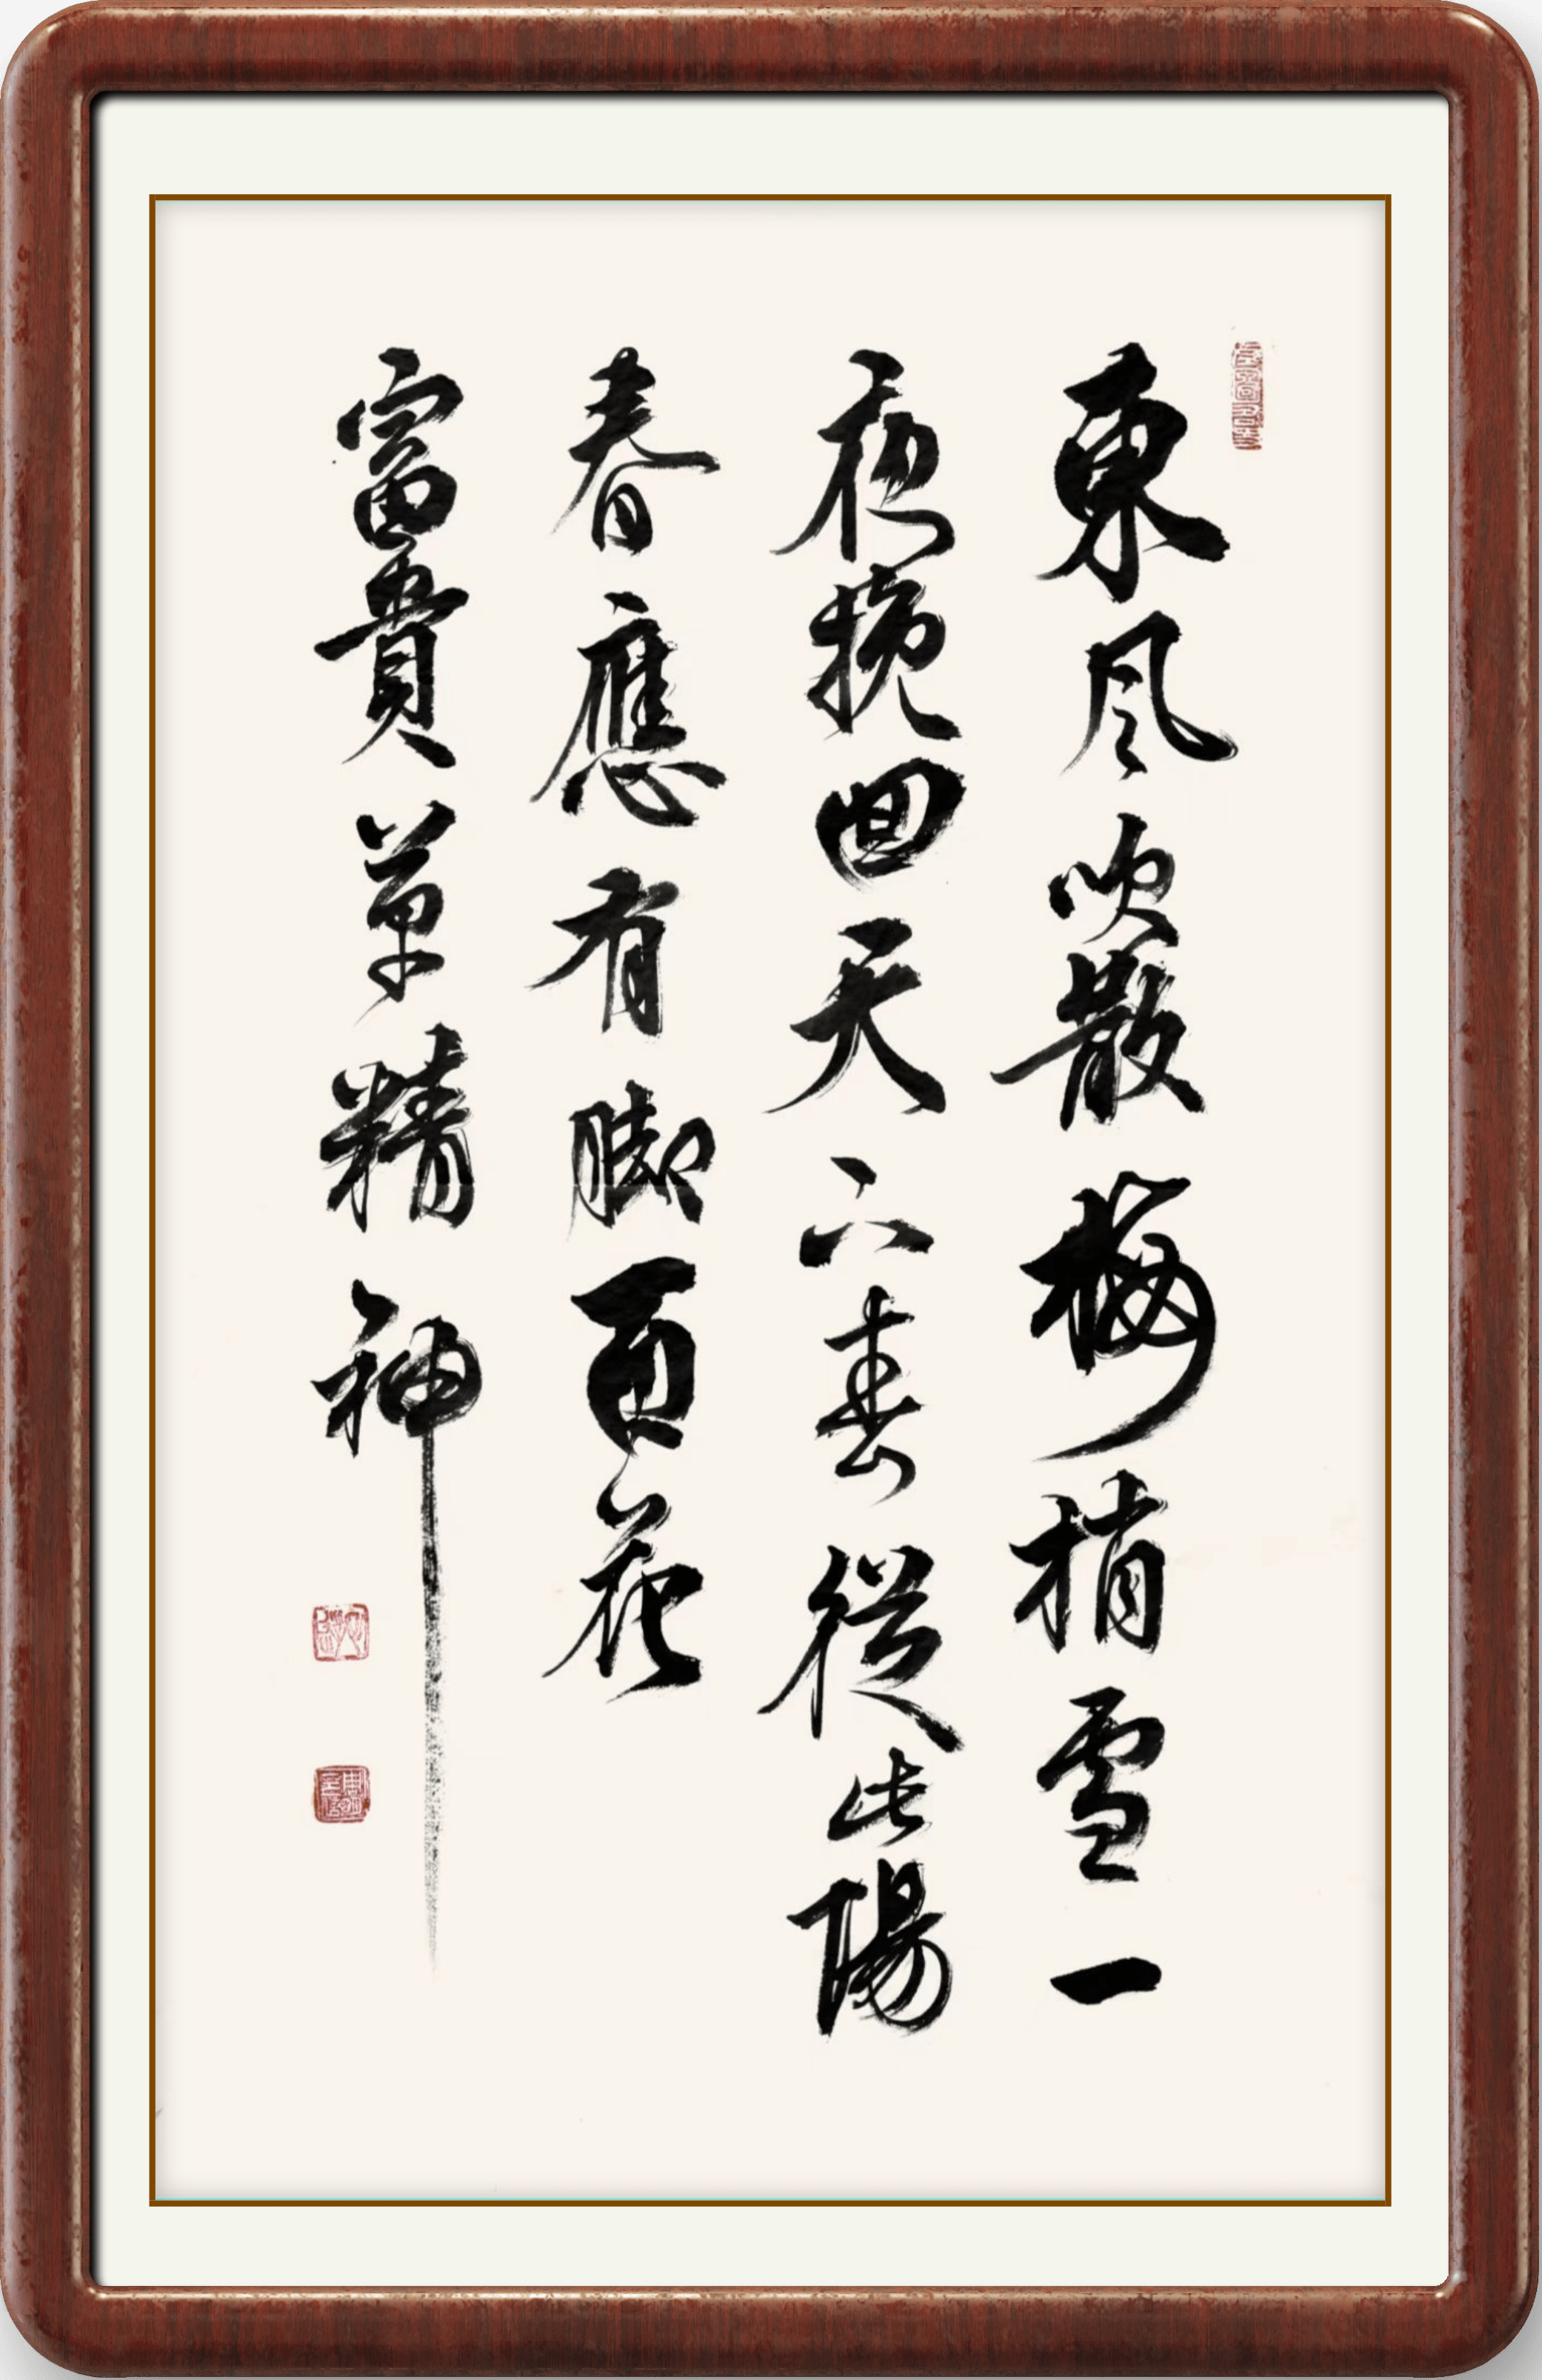 東风吹散梅梢雪一
夜挽回天下春從此陽
春應有脚百花
富貴草精神